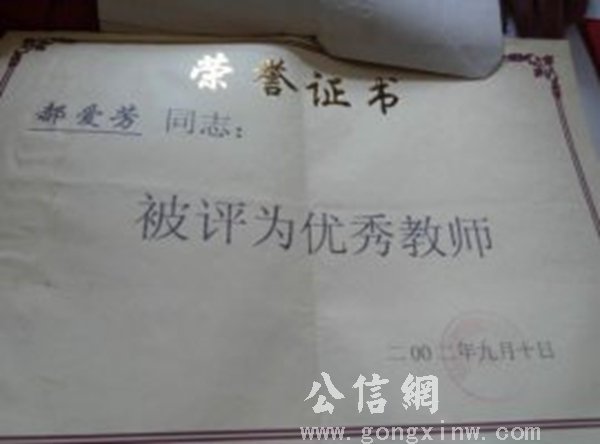 荣誉证书
郝爱芳 同志：
被评为优秀教师
二00二年九月十日
公信網
www.gongxinw.com